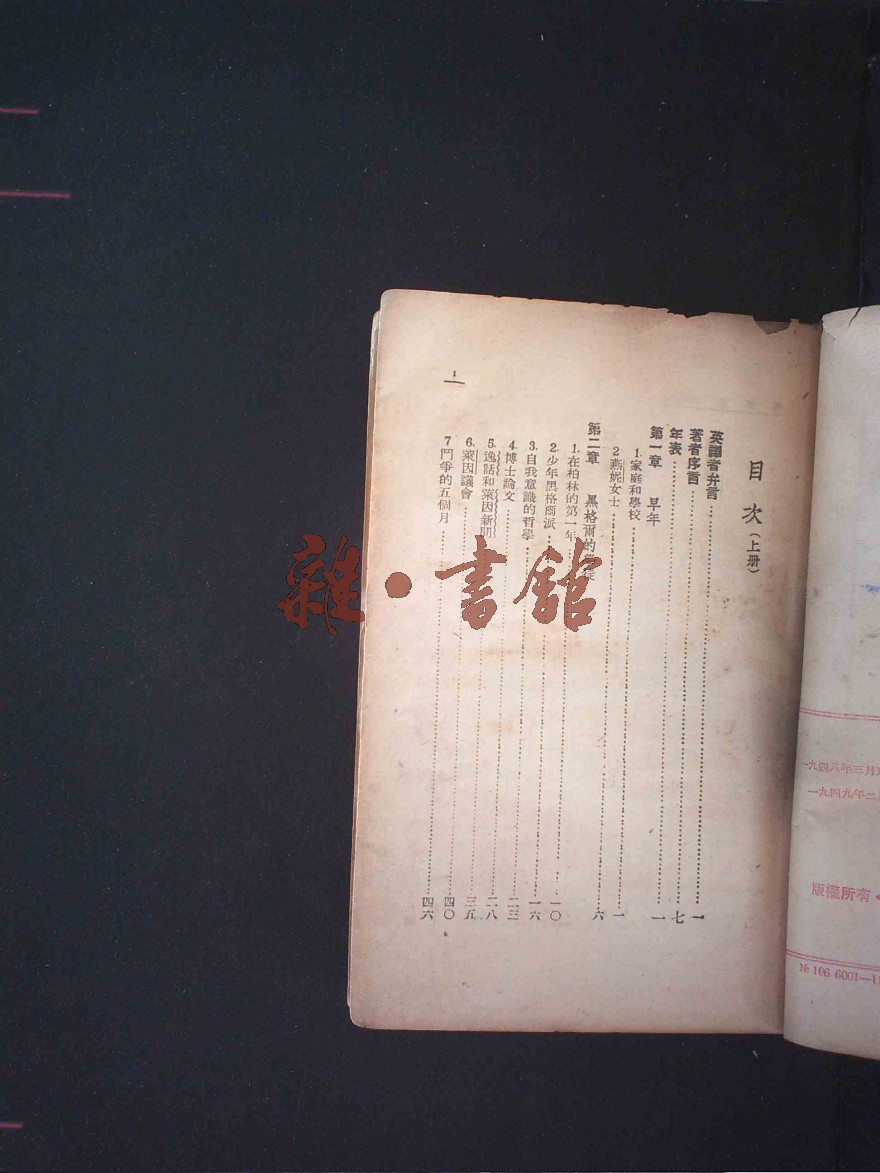 目次（上册）
英譯者弁言……一
著者序言……七
年表……一
第一章　早年
1. 家庭和學校……一
2 燕妮女士……六
第二章　黑格爾的
1. 在柏林的第一年……一〇
2. 少年黑格爾派……一六
3. 自我意識的哲學……二三
4. 博士論文……二八
5. 逸話和萊因新聞……三五
6. 萊因議會……四〇
7 鬥爭的五個月……四六
1
雜·書館
一九四八年三月
一九四九年二
版權所有
№ 106 6001—11